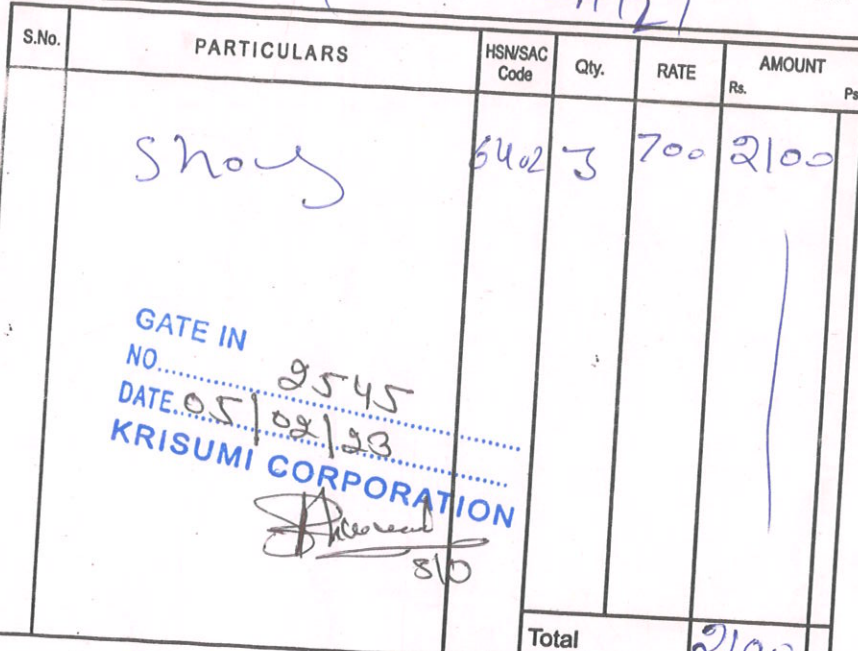 S.No. PARTICULARS HSN/SAC Code Qty. RATE AMOUNT Rs. Ps
Shoes 6402 3 700 2100
GATE IN
NO. 2545
DATE 05/02/23
KRISUMI CORPORATION
S/O
Total 2100